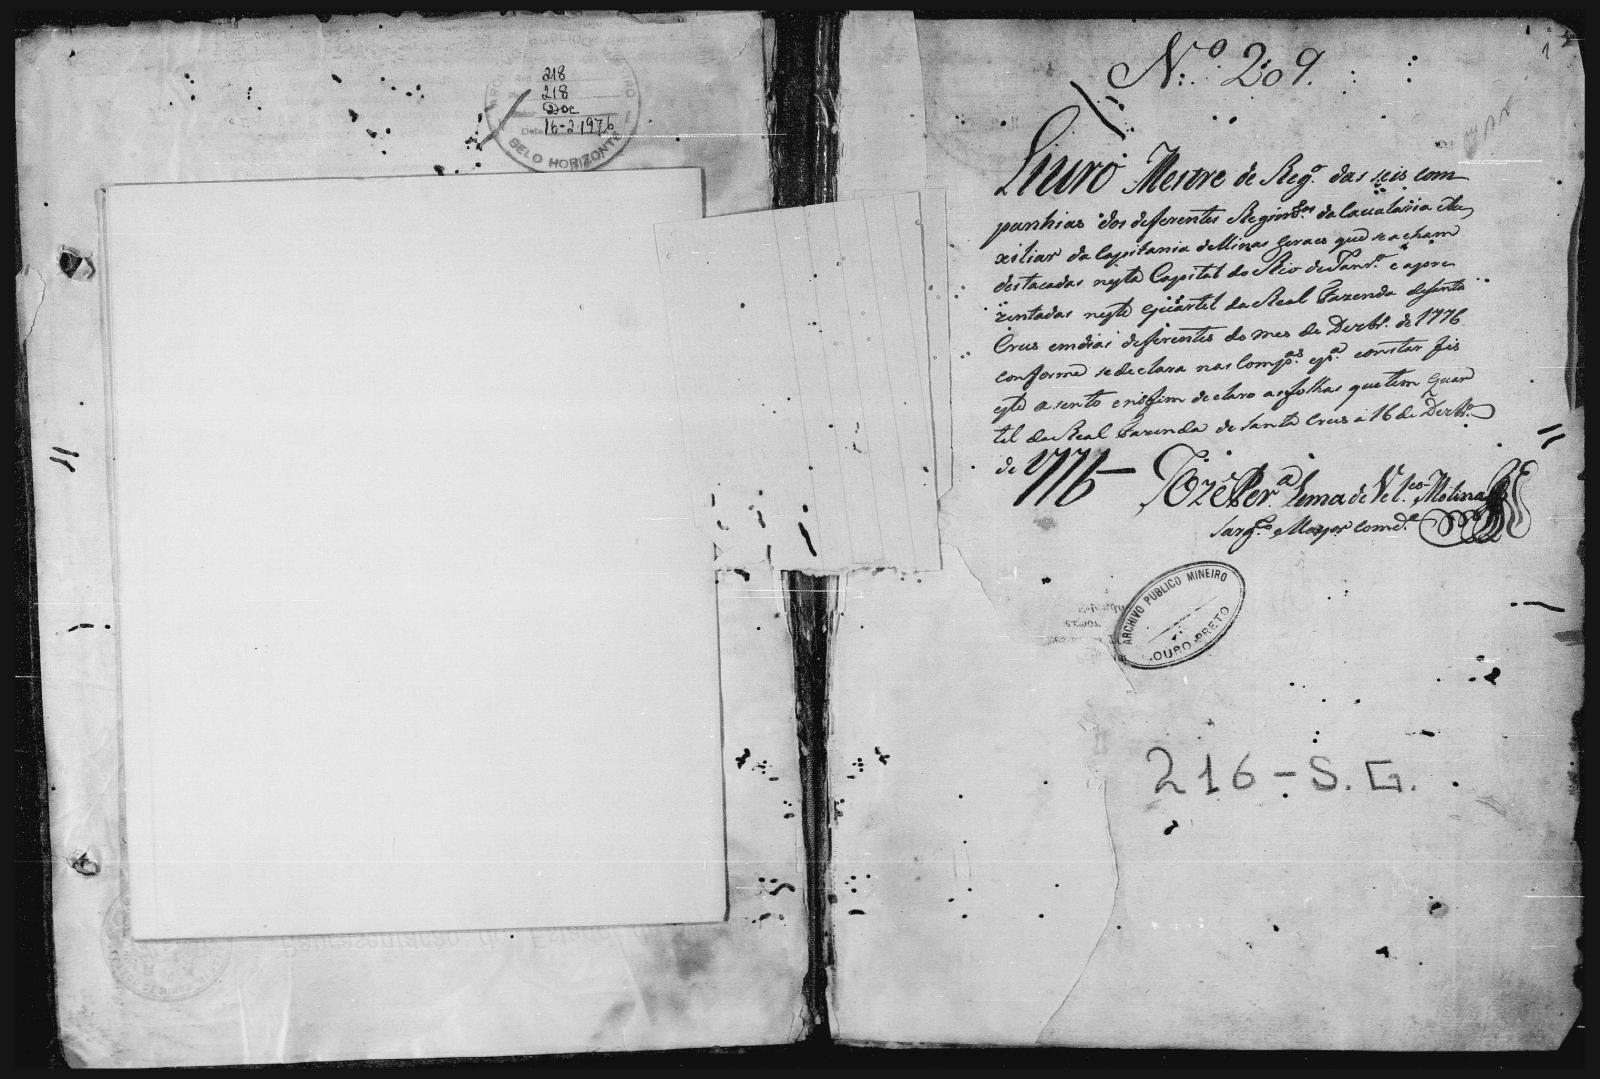 218
218
Doc
Data 16-2-1976
BELO HORIZONTE
1
Nº 209.
Liuro Mestre de Regº. das seis com
panhias dos deferentes Regimtos. da Caualaria Au
xiliar da Capitania de Minas Geraes que se acham
destacadas nesta Capital do Rio de Janrº. e apre
zentadas neste Quartel da Real Fazenda de Santa
Crus em dias deferentes do mes de Dezbrº. de 1776
conforme se declara nas Compªs. e pª. constar fis
este asento e no fim declaro as folhas que tem Quar
tel da Real Fazenda de Santa Crus a 16 de Dezbrº.
de 1776
Jozé Perª. Lima de Velco. Molina
Sargto. Mayor Comde.
ARCHIVO PUBLICO MINEIRO
OURO PRETO
216-S.G.